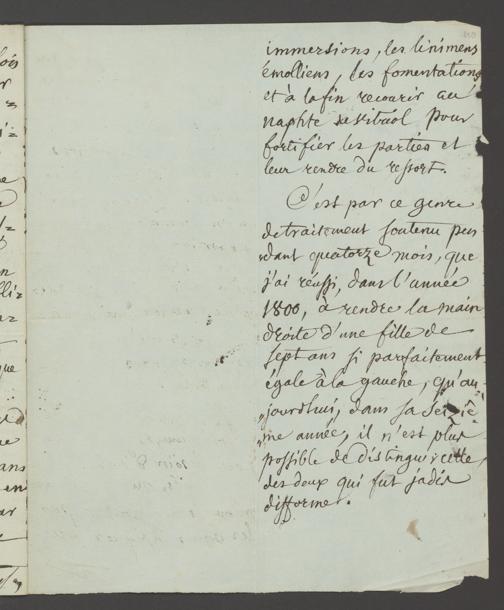 immersions, les linimens
émolliens, les fomentations
et à la fin recourir au
naphte de vitriol pour
fortifier les parties et
leur rendre du ressort.
C'est par ce genre
de traitement soutenu pen-
dant quatorze mois, que
j'ai réussi, dans l'année
1800, à rendre la main
droite d'une fille de
sept ans si parfaitement
égale à la gauche, qu'au-
jourdhui, dans sa seiziè-
me année, il n'est plus
possible de distinguer cette
des deux qui fut jadis
difforme.